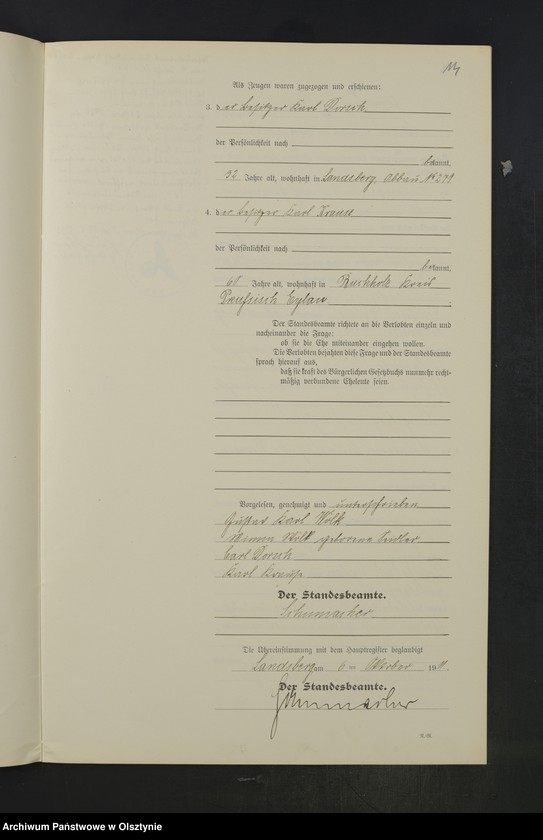 Als Zeugen waren zugezogen und erschienen:
3. der Besitzer Karl Dorsch
der Persönlichkeit nach
bekannt,
32 Jahre alt, wohnhaft in Landsberg, Abbau No 279
4. der Besitzer Karl Krause
der Persönlichkeit nach
bekannt,
Jahre alt, wohnhaft in Buchholz Kreis
Preußisch Eylau
Der Standesbeamte richtete an die Verlobten einzeln und
nacheinander die Frage:
ob sie die Ehe miteinander eingehen wollen.
Die Verlobten bejahten diese Frage und der Standesbeamte
sprach hierauf aus,
daß sie kraft des Bürgerlichen Gesetzbuchs nunmehr recht-
mäßig verbundene Eheleute seien.
Vorgelesen, genehmigt und unterschrieben
Gustav Karl Wölk
Wölk geborene
Carl Dorsch
Karl Krause
Der Standesbeamte.
Schumacher
Die Übereinstimmung mit dem Hauptregister beglaubigt
Landsberg am 6 ten Oktober 19
Der Standesbeamte.
Schumacher
Archiwum Państwowe w Olsztynie